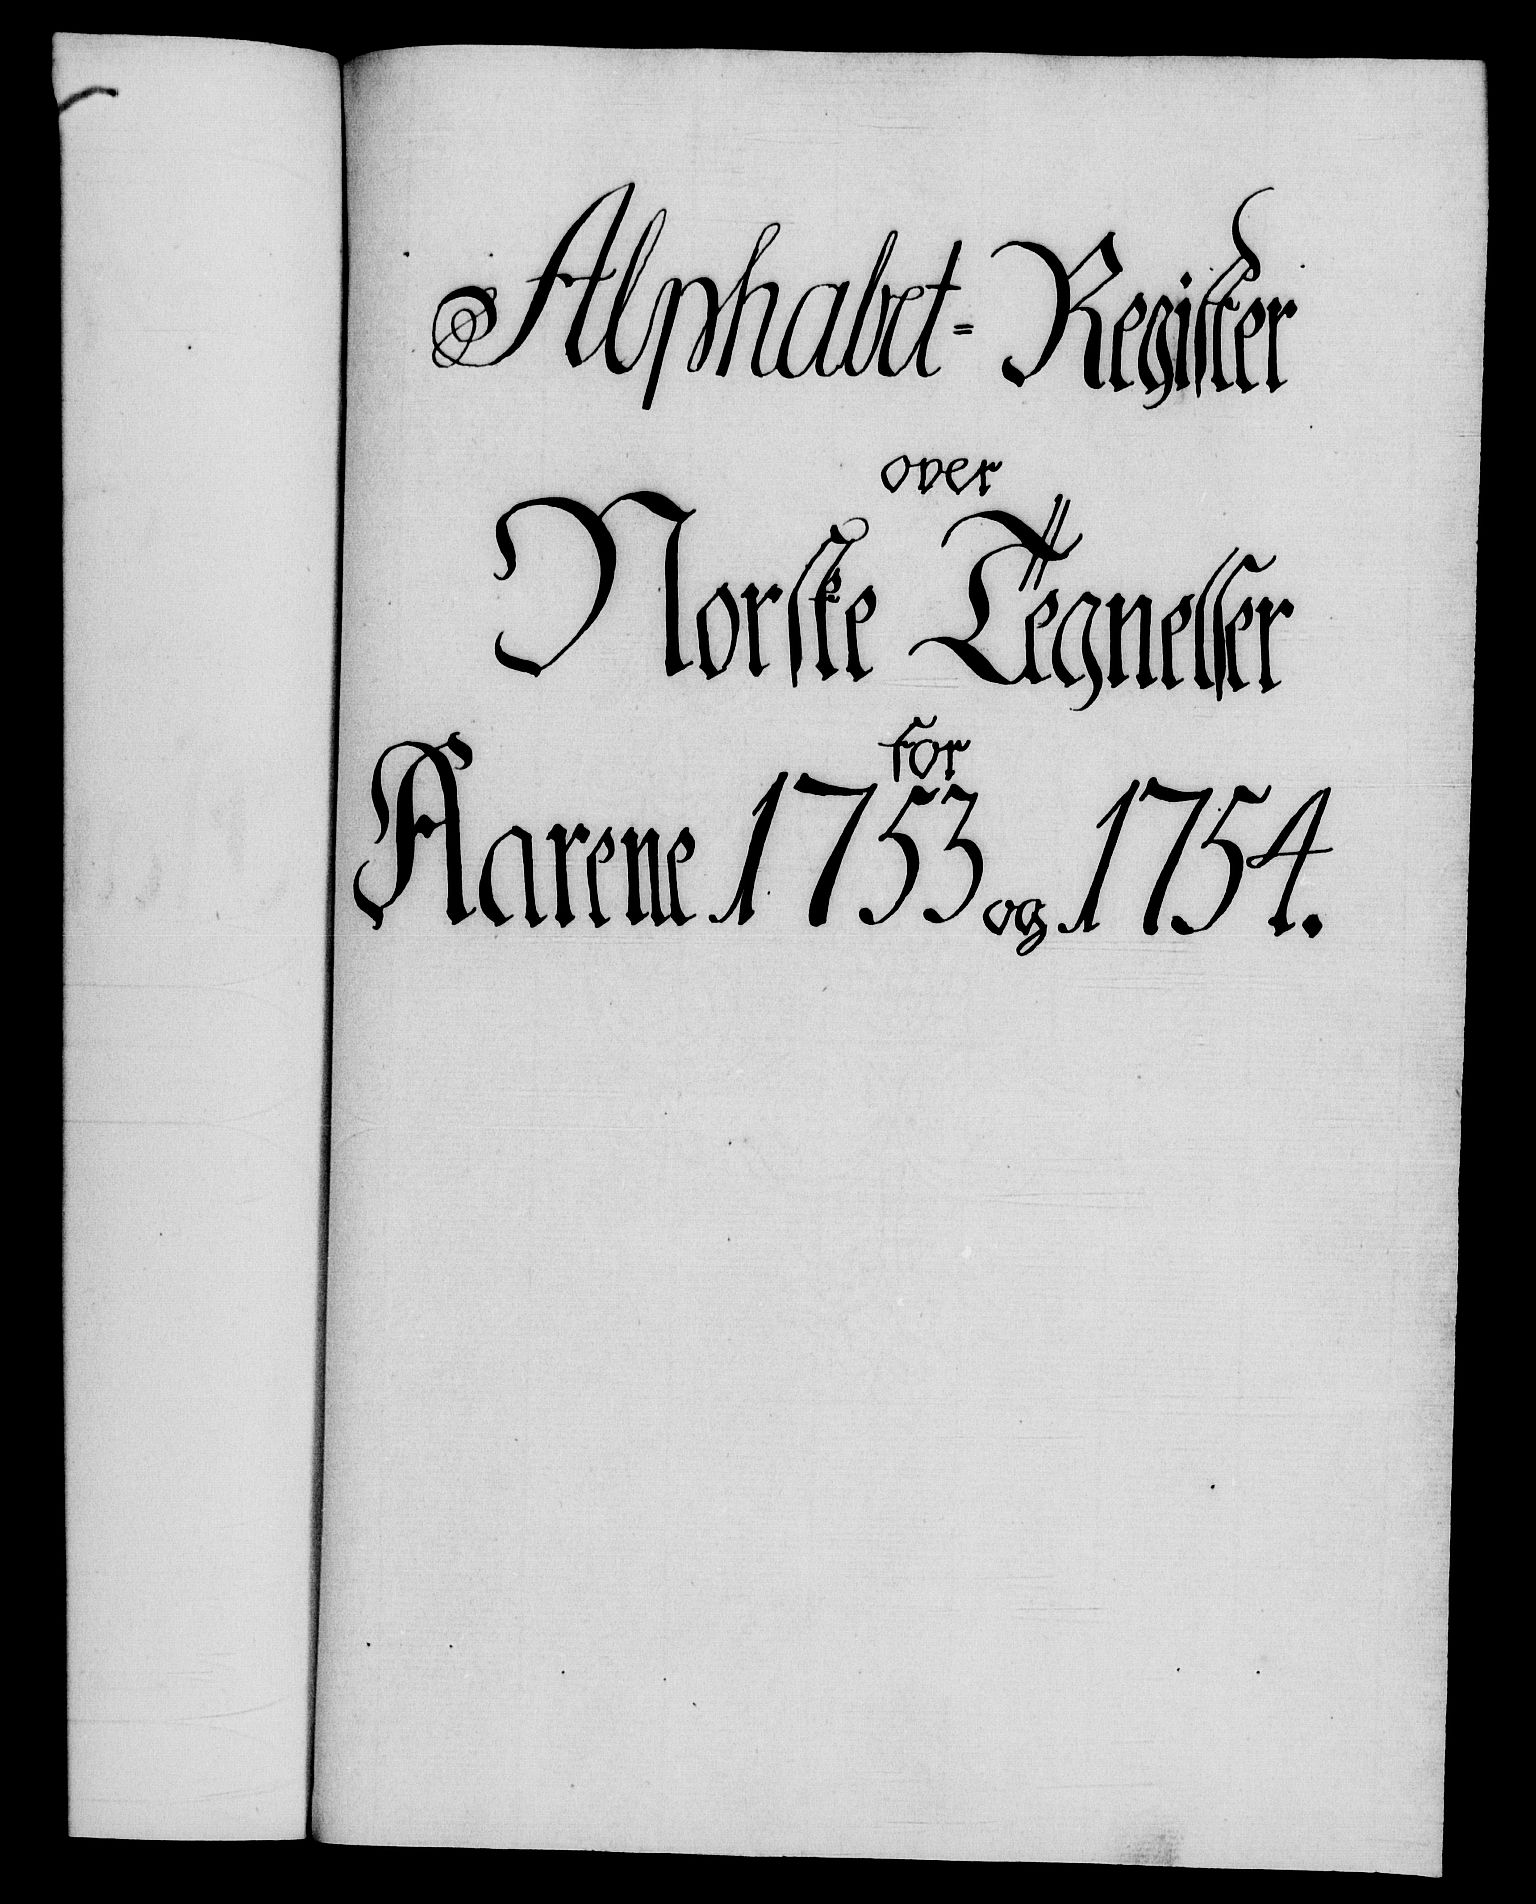 Alphabet= Register
over
Norske Tegnelser
for
Aarene 1753 og 1754.